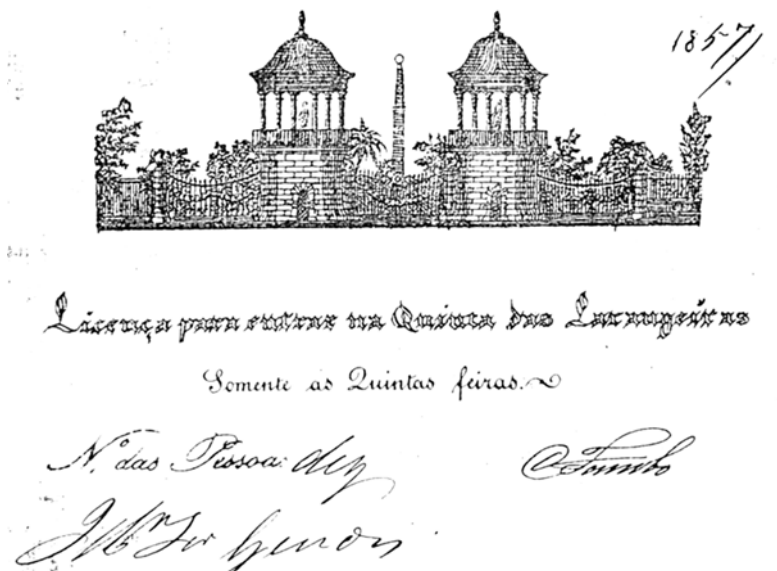 1857
Licença para entrar na Quinta das Larangeiras
Somente as Quintas feiras.
N.º das Pessoas dez